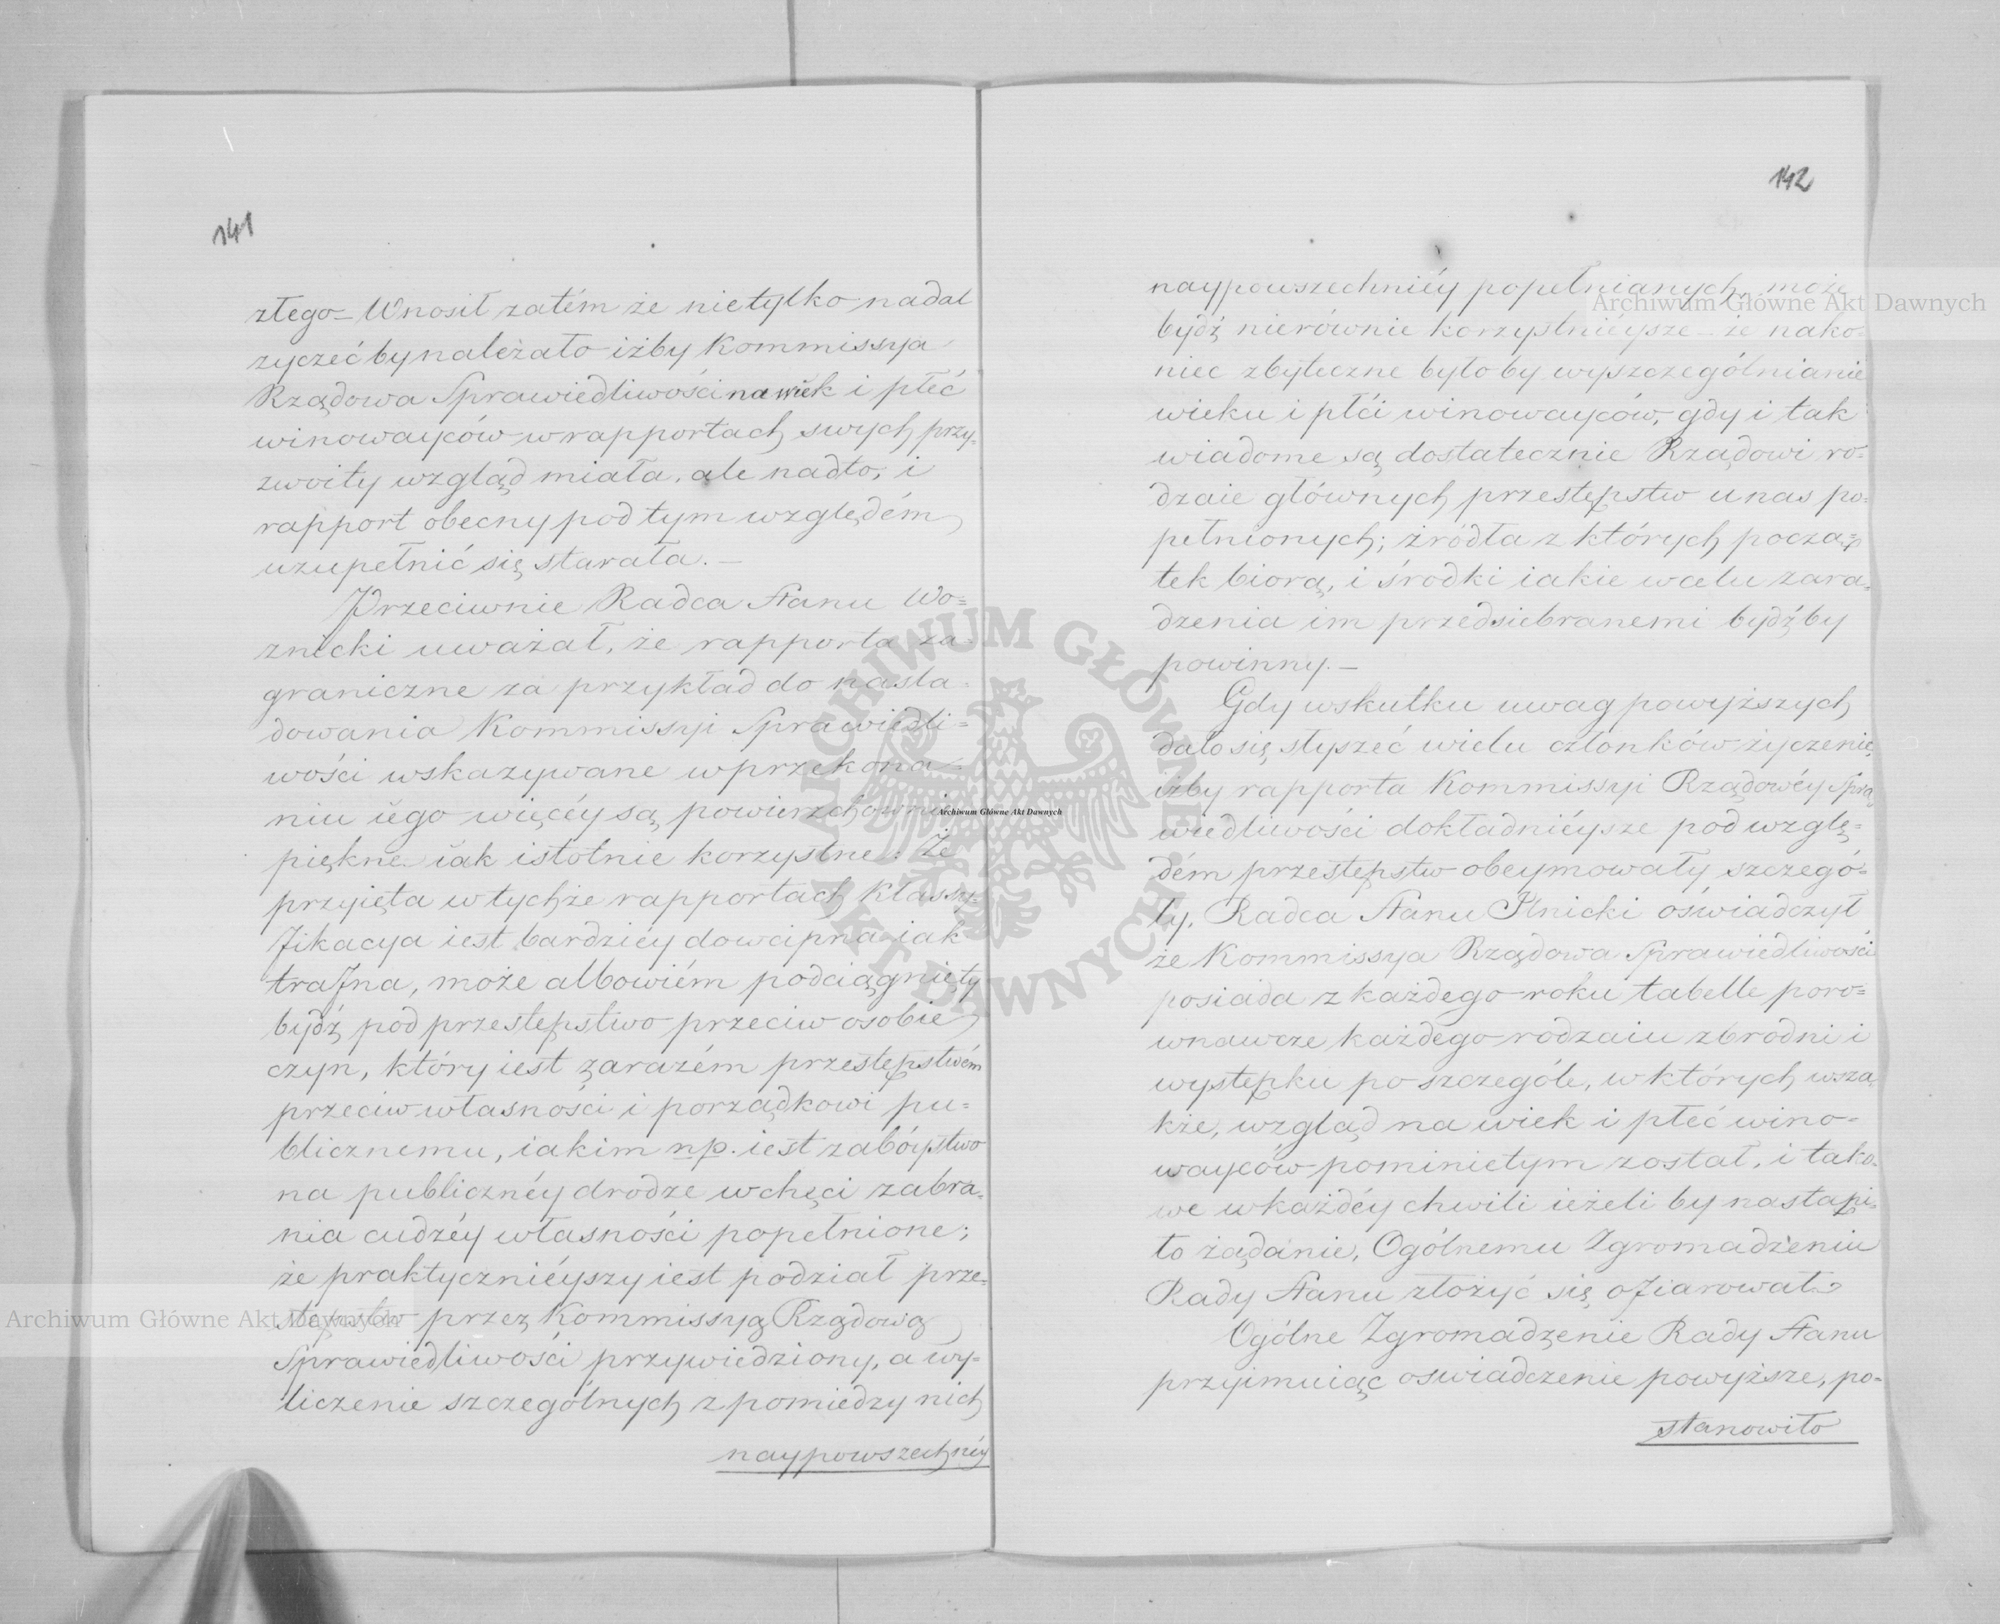 141
złego – Wnosił zatém że nietylko nadal
zyczeć by należało iżby Kommissya
Rządowa Sprawiedliwości na wiek i płeć
winowayców w rapportach swych przy=
zwoity wzgląd miała, ale nadto, i
rapport obecny pod tym względém
uzupełnić się starała. –
Przeciwnie Radca Stanu Wo=
znicki uważał, że rapporta za=
graniczne za przykład do nasla=
dowania Kommissyi Sprawiedli=
wości wskazywane w przekona=
niu iego więcéy są powierzchownie
piękne iak istotnie korzystne: Że
przyięta w tychże rapportach klassy=
fikacya iest bardziéy dowcipna iak
trafna, może albowiém podciągnięty
bydź pod przestępstwo przeciw osobie
czyn, który iest zarazém przestępstwém
przeciw własności i porządkowi pu=
blicznemu, iakim np. iest zabóystwo
na publicznéy drodze w chęci zabra=
nia cudzéy własności popełnione;
że praktyczniéyszy iest podział prze=
stępstw przez Kommissyą Rządową
Sprawiedliwości przywiedziony, a wy=
liczenie szczególnych z pomiedzy nich
naypowszechniéy
142
naypowszechniéy popełnianych, może
bydź nierównie korzystniéysze – że nako=
niec zbyteczne byłoby wyszczególnianie
wieku i płći winowayców, gdy i tak
wiadome są dostatecznie Rządowi ro=
dzaie głównych przestępstw u nas po=
pełnionych; źródła z których począ=
tek biorą, i środki iakie w celu zara=
dzenia im przedsiebranemi bydźby
powinny. –
Gdy wskutku uwag powyższych
dało się słyszeć wielu członków życzenie,
iżby rapporta Kommissyi Rządowéy Spra=
wiedliwości dokładniéysze pod wzglę=
dém przestępstw obeymowały szczegó=
ły, Radca Stanu Plnicki oświadczył
że Kommissya Rządowa Sprawiedliwości
posiada z każdego roku tabelle poro=
wnawcze każdego rodzaiu zbrodni i
występku po szczególe, w których wsza=
kże, wzgląd na wiek i płeć wino=
wayców pominietym został, i tako=
we w każdéy chwili ieżeli by nastąpi=
ło żądanie, Ogólnemu Zgromadzeniu
Rady Stanu złożyć się ofiarował.
Ogólne Zgromadzenie Rady Stanu
przyimuiąc oswiadczenie powyższe, po=
stanowiło
Archiwum Główne Akt Dawnych
Archiwum Główne Akt Dawnych
Archiwum Główne Akt Dawnych
ARCHIWUM GŁÓWNE AKT DAWNYCH